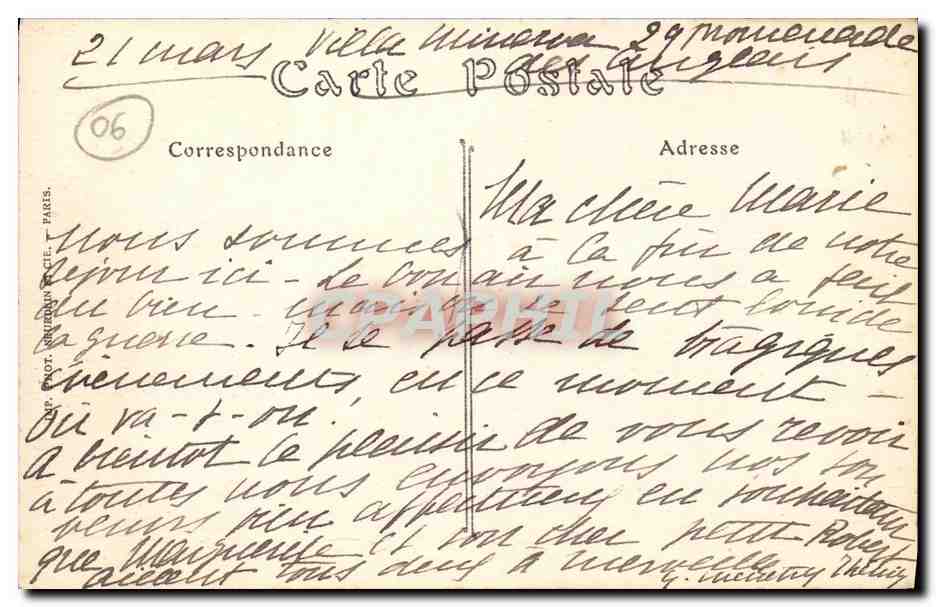 21 mars Villa Minerva 29 Promenade
des Anglais
Carte Postale
06
Correspondance
Adresse
IMP. PHOT. NEURDEIN ET CIE. — PARIS.
CPAPHIL
Ma chère Marie
nous sommes à la fin de notre
séjour ici - Le bon air nous a fait
du bien - mais
la guerre. Il se passe de tragiques
évènements, en ce moment -
où va-t-on.
à bientôt le plaisir de vous revoir
à toutes nous envoyons nos
bien affectueux en souhaitant
que Marguerite et son cher petit Robert
aillent tous deux à merveille